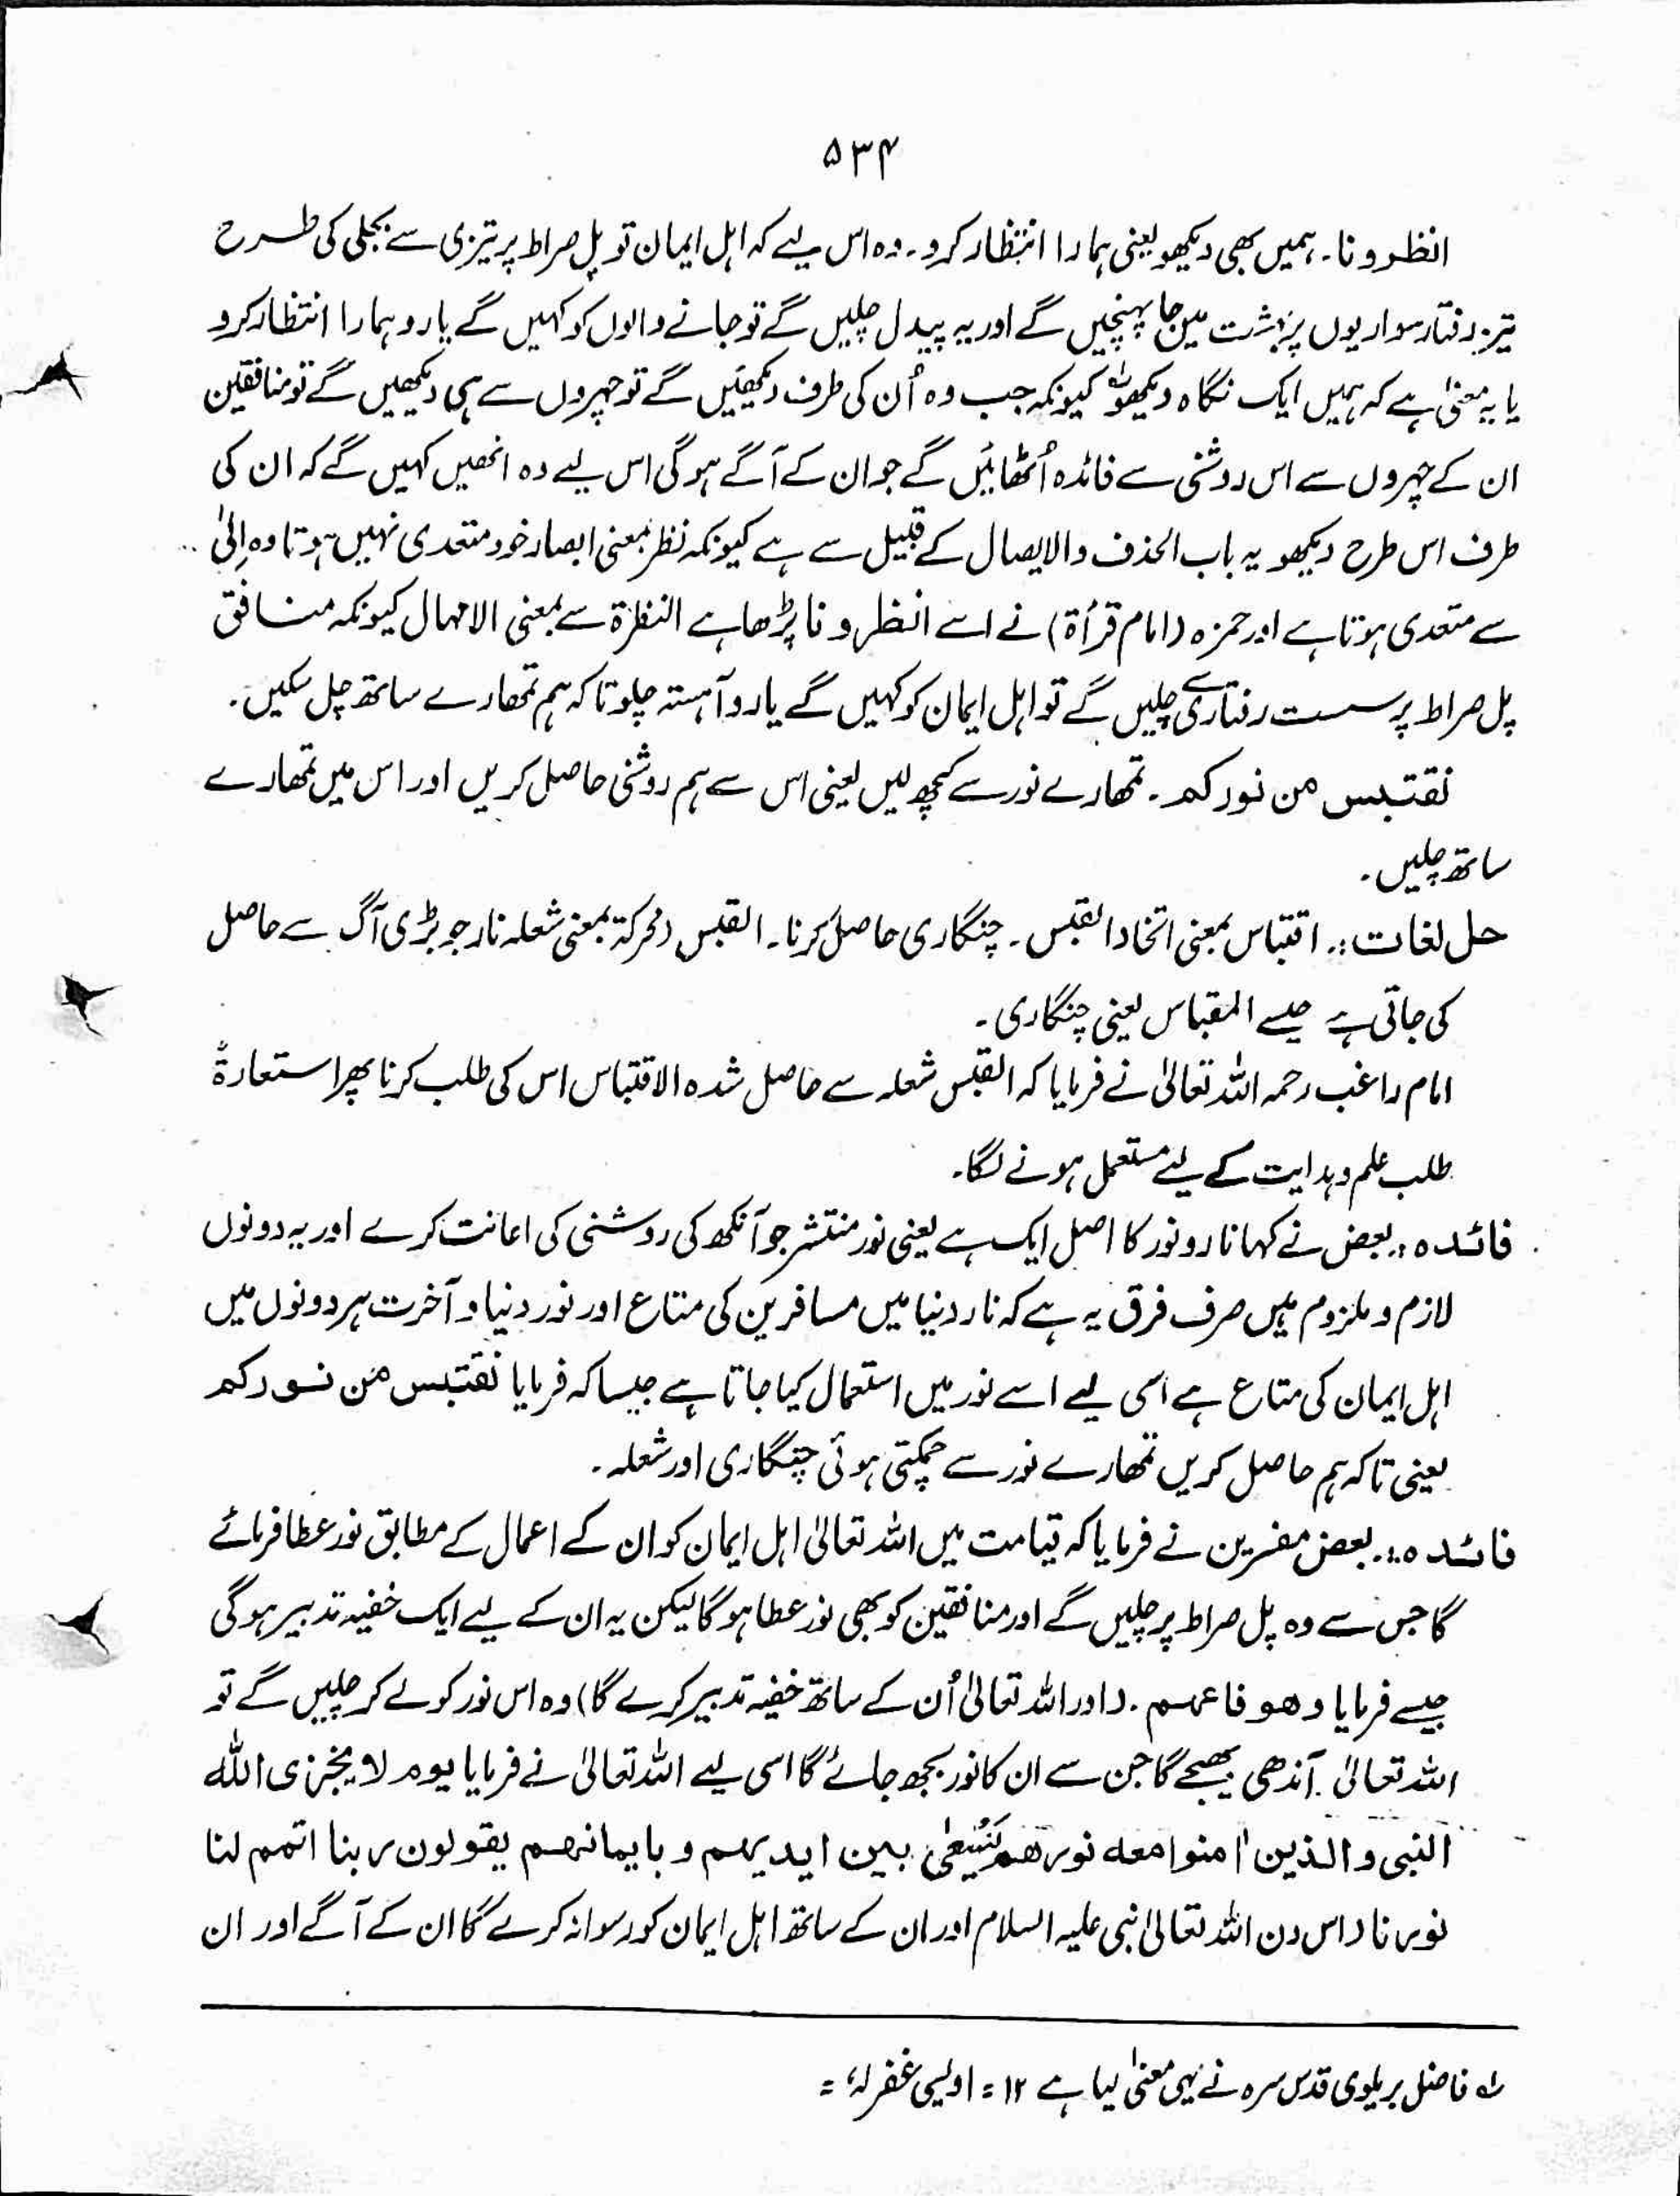 ۵۳۴
انظرونا۔ ہمیں بھی دیکھو یعنی ہمارا انتظار کرو۔ وہ اس لیے کہ اہل ایمان تو پل صراط پر تیزی سے بجلی کی طرح
تیز رفتار سواریوں پر بہشت میں جا پہنچیں گے اور یہ پیدل چلیں گے تو جانے والوں کو کہیں گے یارو ہمارا انتظار کرو
یا یہ معنیٰ ہے کہ ہمیں ایک نگاہ دیکھو لہ کیونکہ جب وہ اُن کی طرف دیکھیں گے تو چہروں سے ہی دیکھیں گے تو منافقین
ان کے چہروں سے اس روشنی سے فائدہ اُٹھائیں گے جو ان کے آگے ہو گی اس لیے وہ انھیں کہیں گے کہ ان کی
طرف اس طرح دیکھو یہ باب الحذف والایصال کے قبیل سے ہے کیونکہ نظر بمعنی ابصار خود متعدی نہیں ہوتا وہ اِلیٰ
سے متعدی ہوتا ہے اور حمزہ (امام قرأۃ) نے اسے انظرونا پڑھا ہے النظرۃ سے بمعنی الامہال کیونکہ منافق
پل صراط پر سست رفتاری سے چلیں گے تو اہل ایمان کو کہیں گے یارو آہستہ چلو تاکہ ہم تمھارے ساتھ چل سکیں۔
نقتبس من نورکم۔ تمھارے نور سے کچھ لیں یعنی اس سے ہم روشنی حاصل کریں اور اس میں تمھارے
ساتھ چلیں۔
حل لغات:۔ اقتباس بمعنی اتخاد القبس۔ چنگاری حاصل کرنا۔ القبس (محرکۃ بمعنی شعلہ نار جو بڑی آگ سے حاصل
کی جاتی ہے جیسے المقباس یعنی چنگاری۔
امام راغب رحمہ اللہ تعالیٰ نے فرمایا کہ القبس شعلہ سے حاصل شدہ الاقتباس اس کی طلب کرنا پھر استعارۃً
طلب علم و ہدایت کے لیے مستعمل ہونے لگا۔
فائدہ:۔ بعض نے کہا نار و نور کا اصل ایک ہے یعنی نور منتشر جو آنکھ کی روشنی کی اعانت کرے اور یہ دونوں
لازم و ملزوم ہیں صرف فرق یہ ہے کہ نار دنیا میں مسافرین کی متاع اور نور دنیا و آخرت ہر دونوں میں
اہل ایمان کی متاع ہے اسی لیے اسے نور میں استعمال کیا جاتا ہے جیسا کہ فرمایا نقتبس من نورکم
یعنی تاکہ ہم حاصل کریں تمھارے نور سے چمکتی ہوئی چنگاری اور شعلہ۔
فائدہ:۔ بعض مفسرین نے فرمایا کہ قیامت میں اللہ تعالیٰ اہل ایمان کو ان کے اعمال کے مطابق نور عطا فرمائے
گا جس سے وہ پل صراط پر چلیں گے اور منافقین کو بھی نور عطا ہو گا لیکن یہ ان کے لیے ایک خفیہ تدبیر ہو گی
جیسے فرمایا وھو . (اور اللہ تعالیٰ اُن کے ساتھ خفیہ تدبیر کرے گا) وہ اس نور کو لے کر چلیں گے تو
اللہ تعالیٰ آندھی بھیجے گا جن سے ان کا نور بجھ جائے گا اسی لیے اللہ تعالیٰ نے فرمایا یوم لا یخزی اللہ
النبی والذین اٰمنوا معہ نورھم یسعیٰ بین ایدیہم و بایمانہم یقولون ربنا اتمم لنا
نورنا (اس دن اللہ تعالیٰ نبی علیہ السلام اور ان کے ساتھ اہل ایمان کو رسوا نہ کرے گا ان کے آگے اور ان
لہ فاضل بریلوی قدس سرہ نے یہی معنیٰ لیا ہے ۱۲ = اویسی غفرلہٗ =